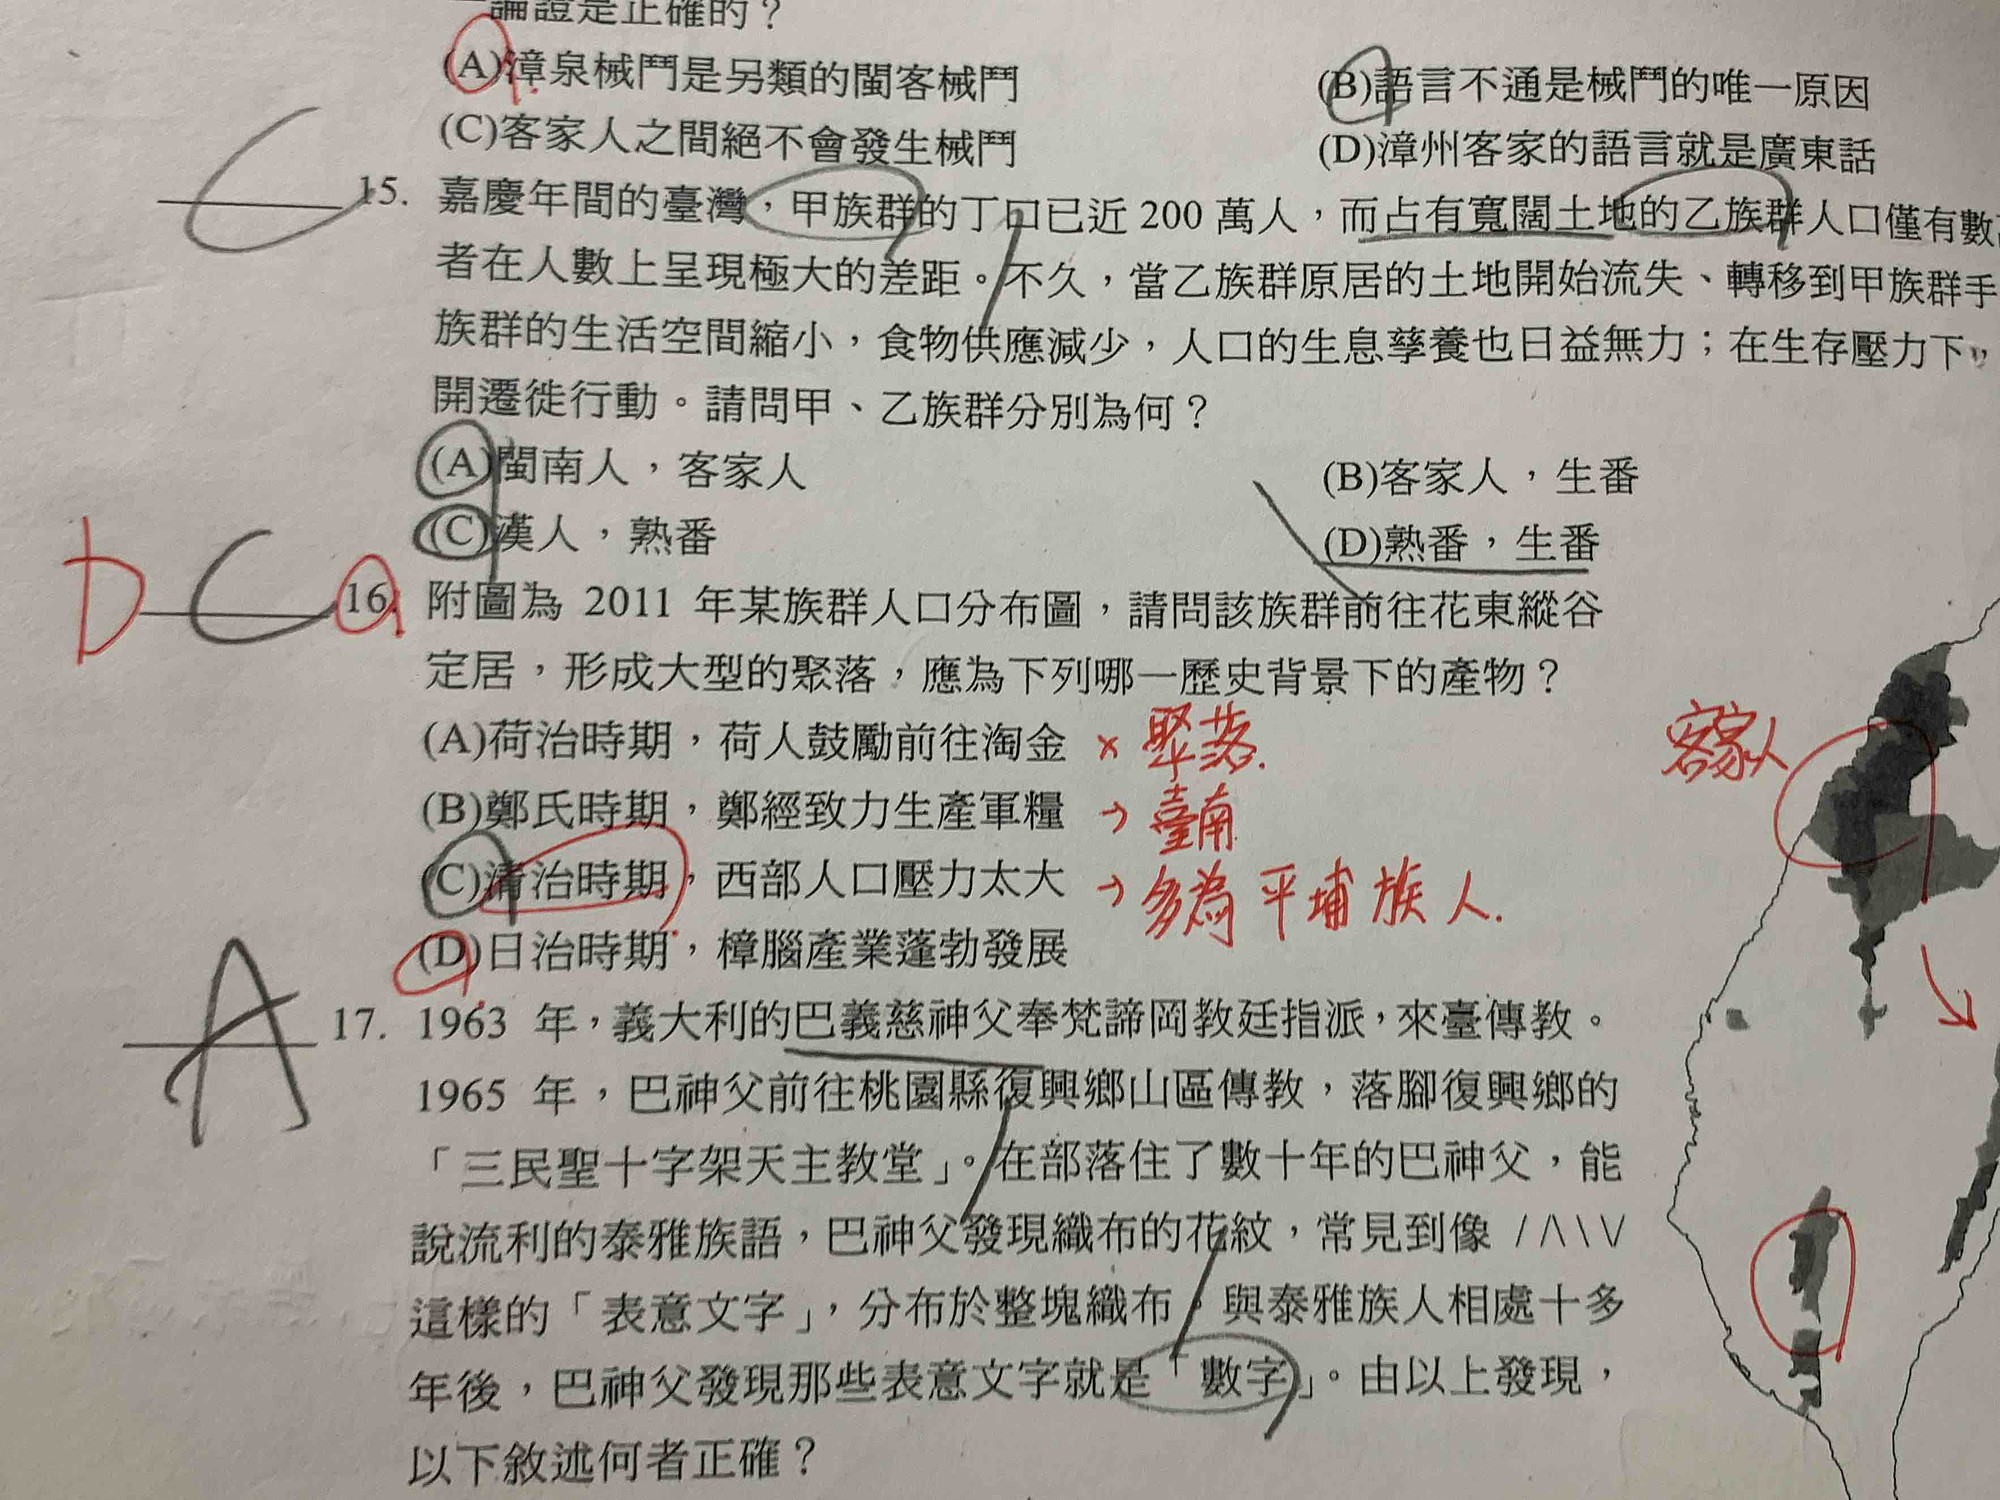 論證是正確的？
(A)漳泉械鬥是另類的閩客械鬥 (B)語言不通是械鬥的唯一原因
(C)客家人之間絕不會發生械鬥 (D)漳州客家的語言就是廣東話
C 15. 嘉慶年間的臺灣，甲族群的丁口已近 200 萬人，而占有寬闊土地的乙族群人口僅有數
者在人數上呈現極大的差距。不久，當乙族群原居的土地開始流失、轉移到甲族群手
族群的生活空間縮小，食物供應減少，人口的生息孳養也日益無力；在生存壓力下，
開遷徙行動。請問甲、乙族群分別為何？
(A)閩南人，客家人 (B)客家人，生番
(C)漢人，熟番 (D)熟番，生番
D C 16. 附圖為 2011 年某族群人口分布圖，請問該族群前往花東縱谷
定居，形成大型的聚落，應為下列哪一歷史背景下的產物？
(A)荷治時期，荷人鼓勵前往淘金 × 聚落.
客家人
(B)鄭氏時期，鄭經致力生產軍糧 → 臺南
(C)清治時期，西部人口壓力太大 → 多為平埔族人.
(D)日治時期，樟腦產業蓬勃發展
A 17. 1963 年，義大利的巴義慈神父奉梵諦岡教廷指派，來臺傳教。
1965 年，巴神父前往桃園縣復興鄉山區傳教，落腳復興鄉的
「三民聖十字架天主教堂」。在部落住了數十年的巴神父，能
說流利的泰雅族語，巴神父發現織布的花紋，常見到像 / /\ \ \/
這樣的「表意文字」，分布於整塊織布。與泰雅族人相處十多
年後，巴神父發現那些表意文字就是「數字」。由以上發現，
以下敘述何者正確？